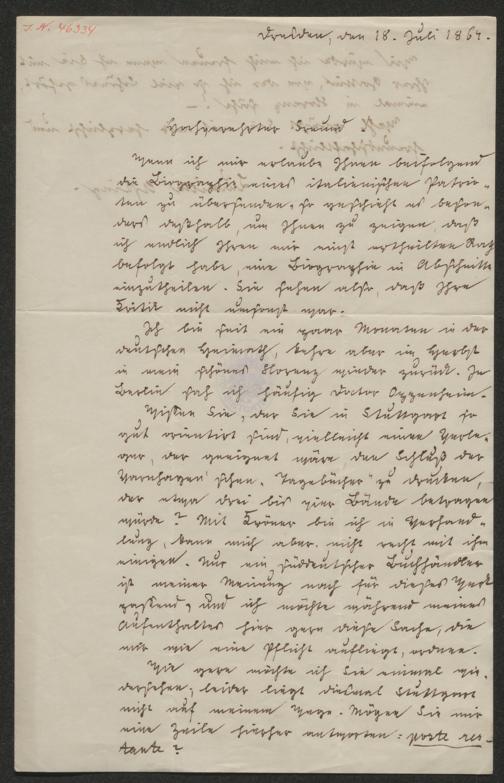 J. N. 46334
Dresden, den 18. Juli 1864.
Hochverehrter Freund!
Wenn ich mir erlaube Ihnen beifolgend
die Biographie eines italienischen Patrio-
ten zu übersenden, so geschieht es beson-
ders deßhalb, um Ihnen zu zeigen, daß
ich endlich Ihren mir einst ertheilten Rath
befolgt habe, eine Biographie in Abschnitte
einzutheilen. Sie sehen also, daß Ihre
Kritik nicht umsonst war.
Ich bin seit ein paar Monaten in der
deutschen Heimath, kehre aber im Herbst
in mein schönes Florenz wieder zurück. In
Berlin sah ich häufig Doctor Oppenheim.
Wißen Sie, der Sie in Stuttgart so
gut orientirt sind, vielleicht einen Verle-
ger, der geeignet wäre den Schluß der
Varnhagen'schen „Tagebücher" zu drucken,
der etwa drei bis vier Bände betragen
würde? Mit Kröner bin ich in Verhand-
lung, kann mich aber nicht recht mit ihm
einigen. Nur ein süddeutscher Buchhändler
ist meiner Meinung nach für dieses Werk
passend, und ich möchte während meines
Aufenthaltes hier gern diese Sache, die
mir wie eine Pflicht aufliegt, ordnen.
Wie gern möchte ich Sie einmal wie-
dersehen; leider liegt diesmal Stuttgart
nicht auf meinem Wege. Mögen Sie mir
eine Zeile hierher antworten: poste res-
tante?